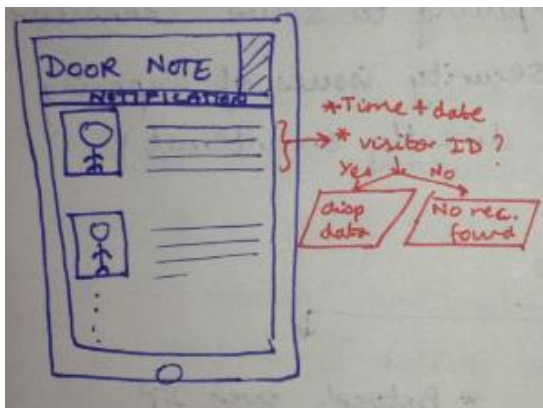 DOOR NOTE
NOTIFICATION
*Time + date
* visitor ID?
Yes No
disp
data
No rec.
found